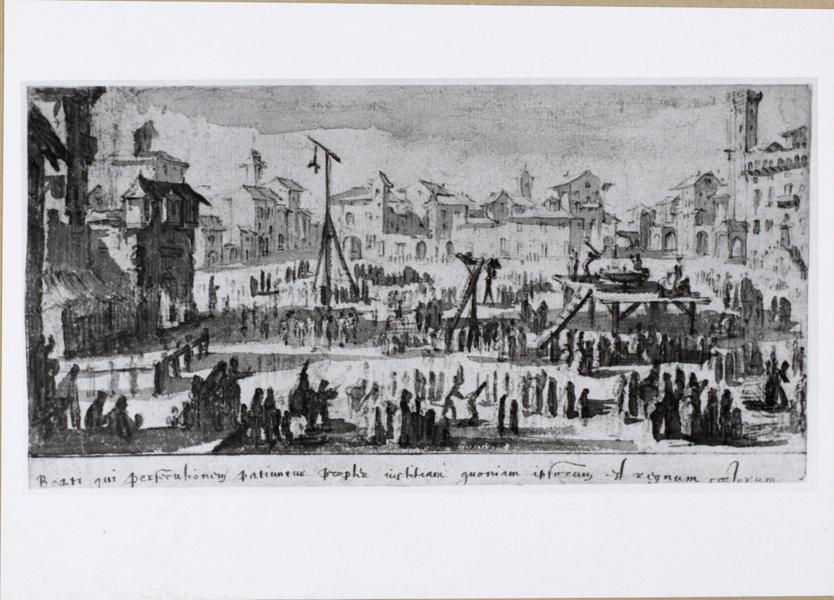 Beati qui persecutionem patiuntur propter iustitiam quoniam ipsorum est regnum cœlorum